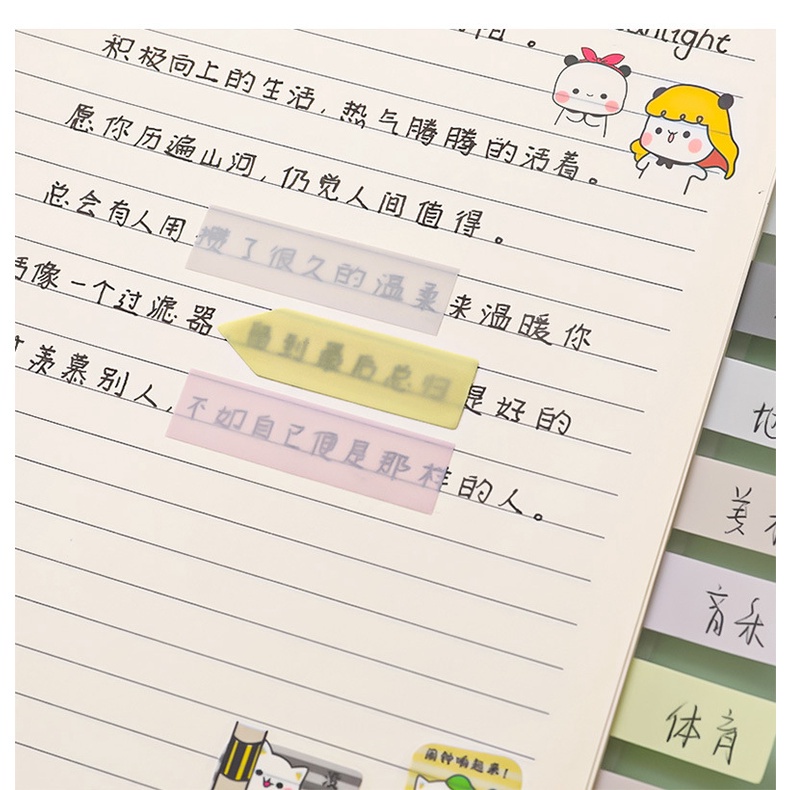 积极向上的生活，热气腾腾的活着。
愿你历遍山河，仍觉人间值得。
总会有人用攒了很久的温柔来温暖你
像一个过滤器 到最后总归是好的
羡慕别人，不如自己便是那样的人。
美
音乐
体育
闹铃响起来！